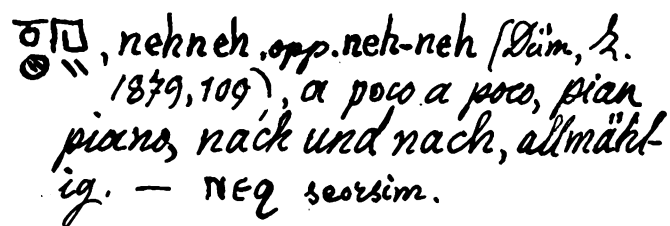 , nehneh, opp. neh-neh (Düm, Z.
1879,109), a poco a poco, pian
piano, nach und nach, allmähl-
ig. — ⲛⲉϥ seorsim.